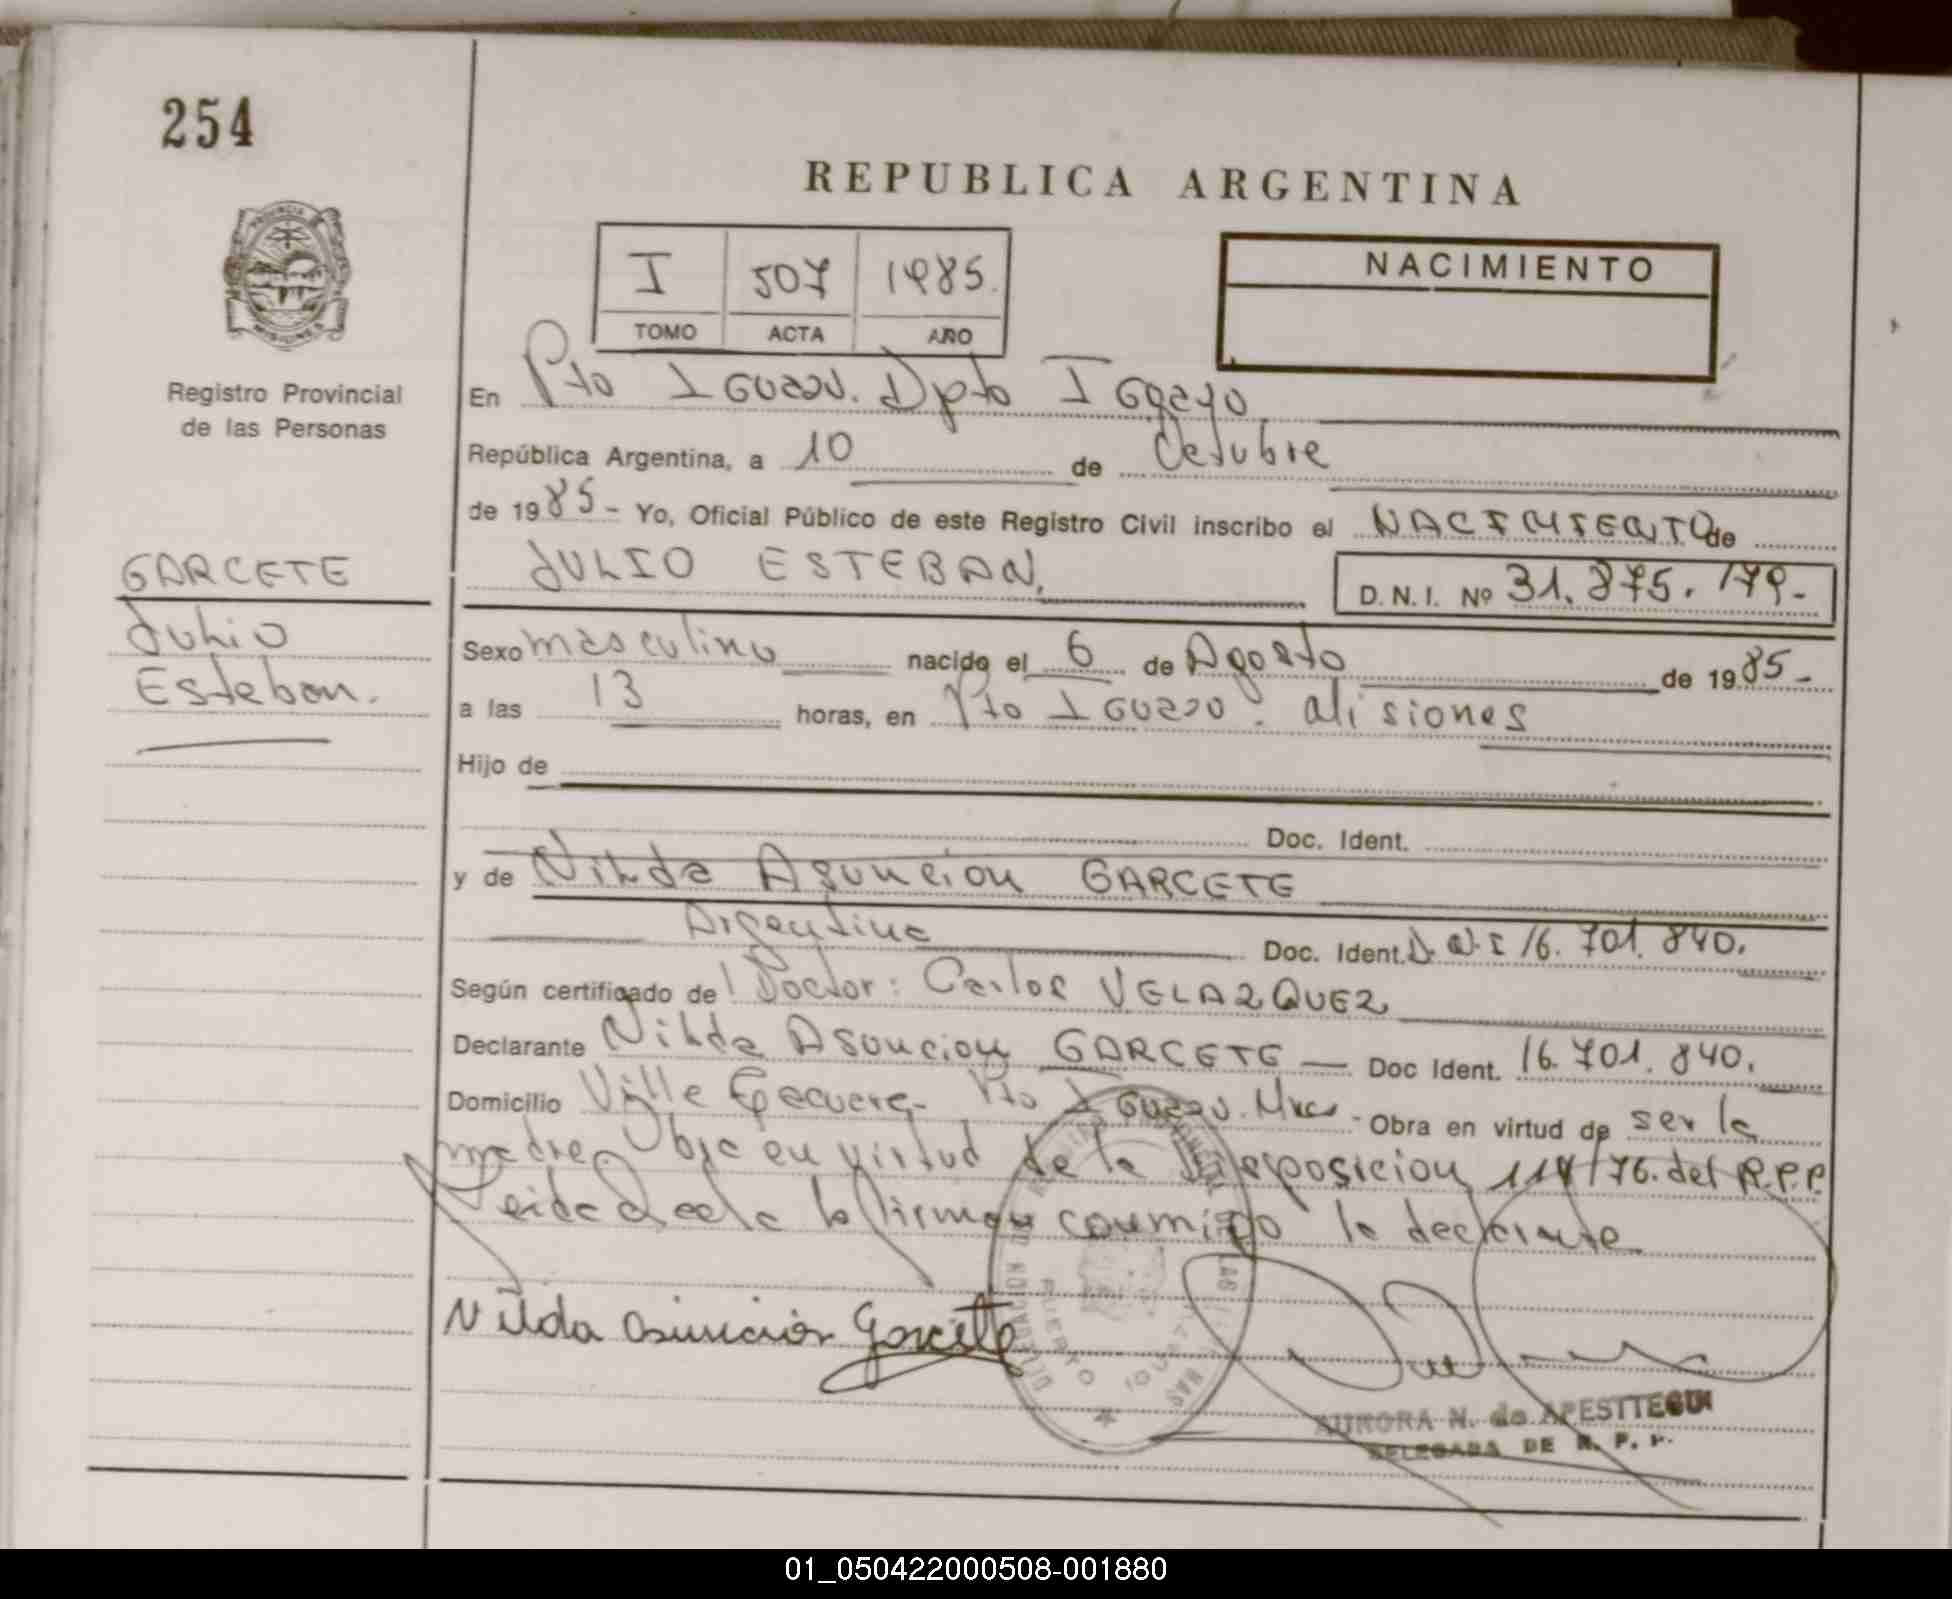 254
REPUBLICA ARGENTINA
PROVINCIA
MISIONES
I 507 1985.
TOMO ACTA AÑO
NACIMIENTO
Registro Provincial
de las Personas
En Pto Iguazu. Dpto Iguazu
República Argentina, a 10 de Octubre
de 1985- Yo, Oficial Público de este Registro Civil inscribo el NACIMIENTO de
JULIO ESTEBAN. D.N.I. Nº 31.875.179.-
GARCETE
Julio
Esteban.
Sexo masculino nacido el 6 de Agosto de 1985-
a las 13 horas, en Pto Iguazu. Misiones
Hijo de
Doc. Ident.
y de Nilda Asuncion GARCETE
Argentina Doc. Ident. D.N.I 16.701.840.
Según certificado de Doctor: Carlos VELAZQUEZ
Declarante Nilda Asuncion GARCETE — Doc Ident. 16.701.840.
Domicilio Villa Pto Iguazu. Mnes - Obra en virtud de ser la
madre. Obra en virtud de la Disposicion 114/76. del R.P.P.
Leida el acta la firman conmigo la declarante
Nilda Asuncion Garcete
PUERTO IGUAZU
AURORA N. de APESTTEGUI
DELEGADA DE R. P. P.
01_050422000508-001880